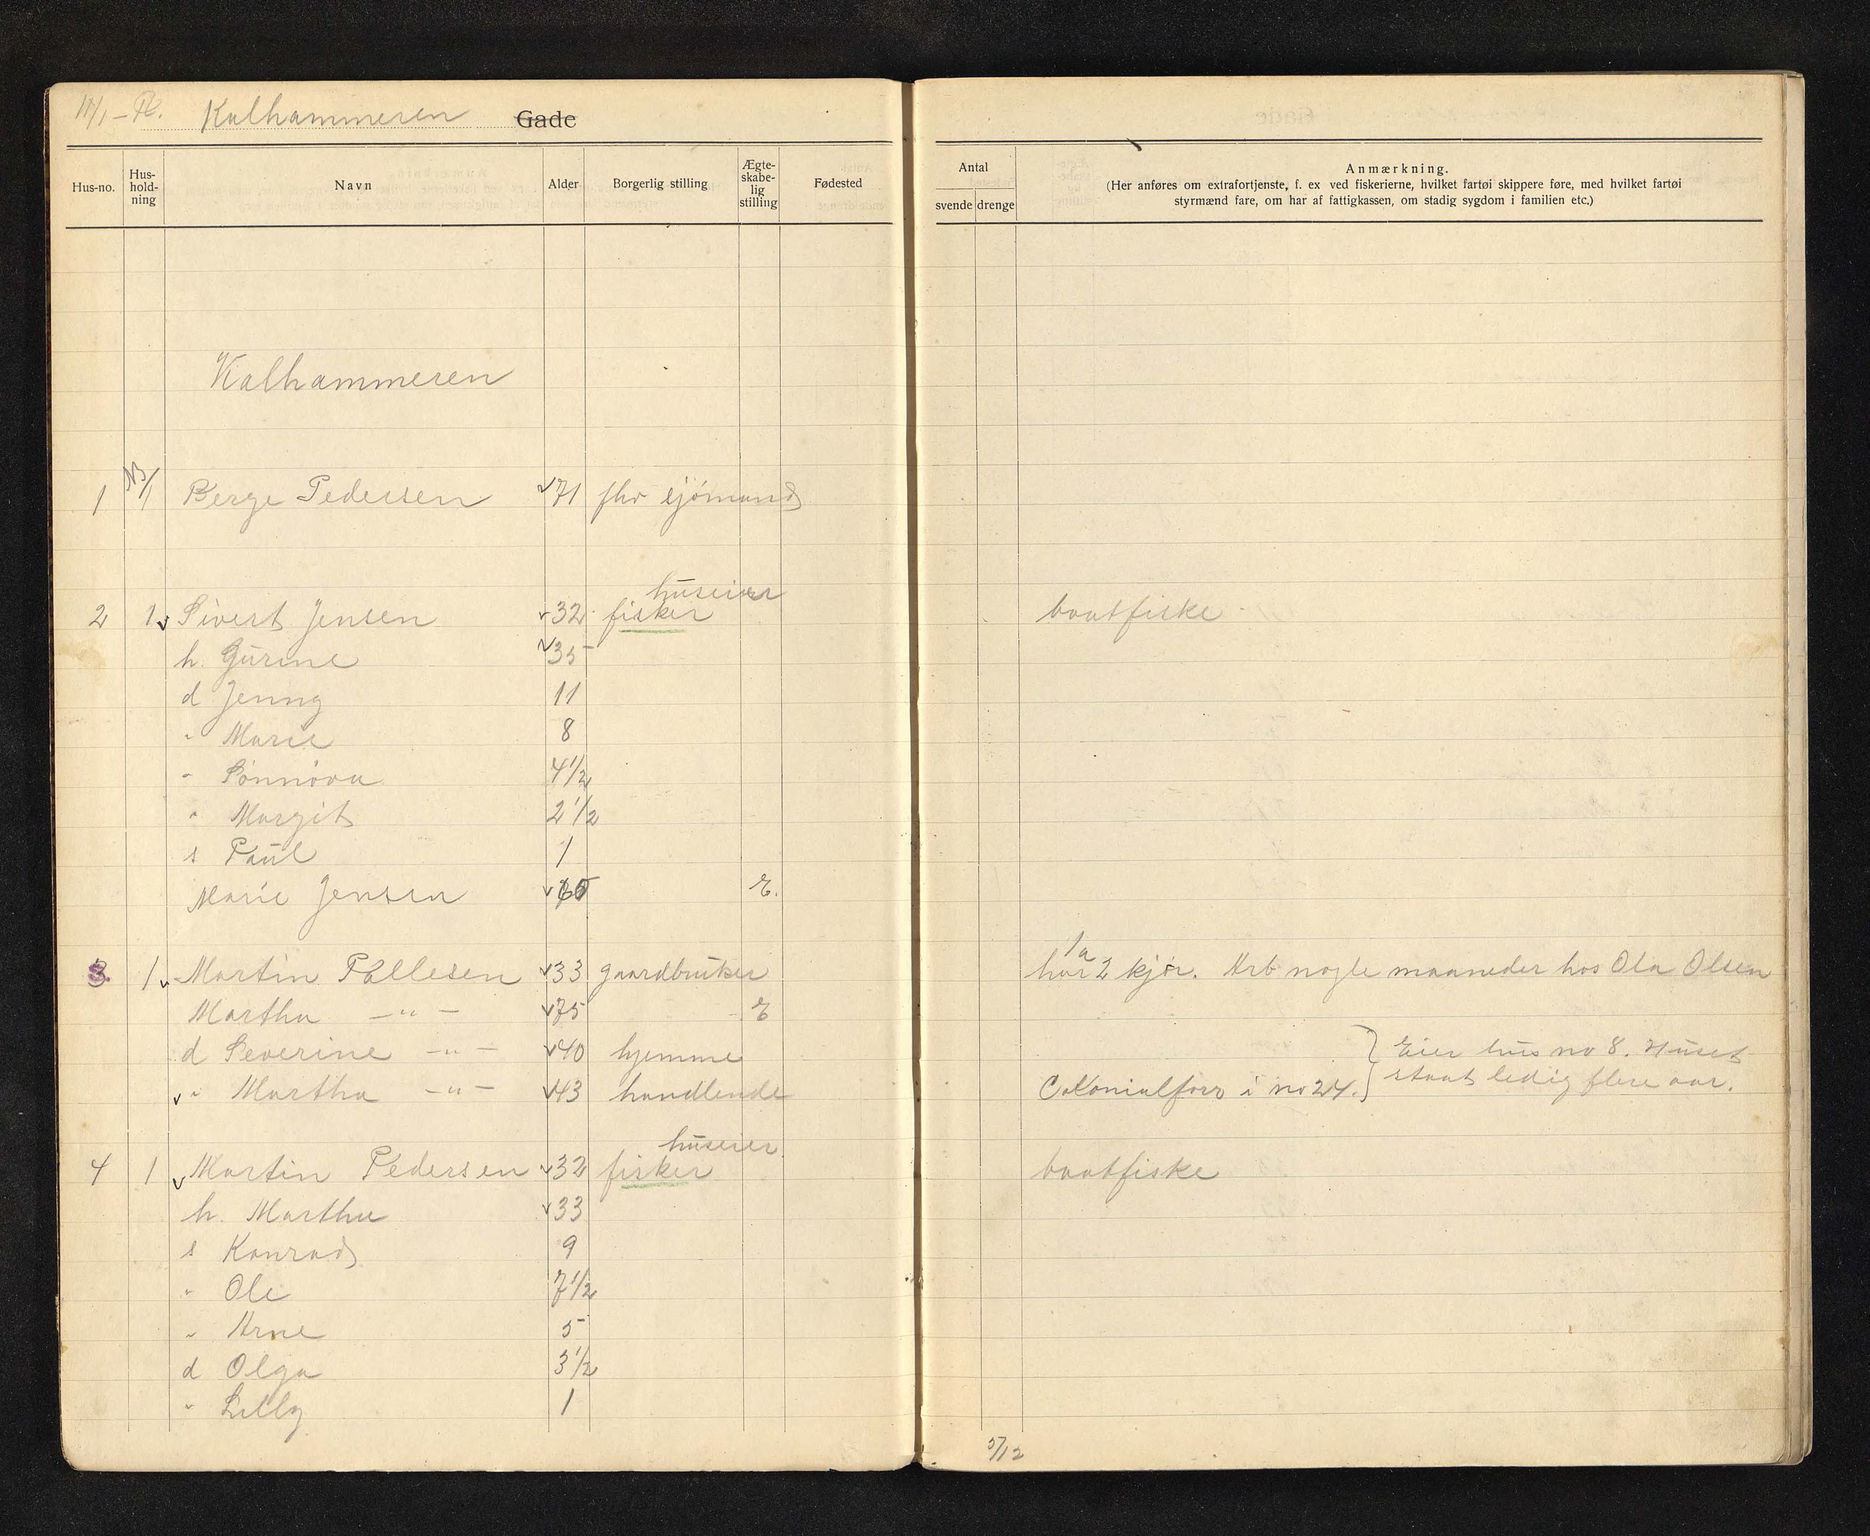 11/1 - Kalhammeren Gade
Hus-no. Hus-hold-ning Navn Alder Borgerlig stilling Ægte-skabe-lig stilling Fødested
Antal svende drenge
Anmærkning.
(Her anføres om extrafortjenste, f. ex ved fiskerierne, hvilket fartøi skippere føre, med hvilket fartøi
styrmænd fare, om har af fattigkassen, om stadig sygdom i familien etc.)
Kalhammeren
1 1 Berge Pedersen 71 fhv sjömand
huseier
2 1 Sivert Jensen 32 fisker baatfiske
h. Gurine 35
d Jenny 11
" Marie 8
" Sönnöva 4 1/2
" Margit 2 1/2
s Paul 1
Marie Jensen 65 E.
3. 1 Martin Pallesen 33 gaardbruker har 1 a 2 kjör. Arb nogle maaneder hos Ola Olsen
Martha —"— 75 E
d Severine —"— 40 hjemme } Eier hus no 8. Huset
" Martha —"— 43 handlende Colonialforr i no 24. staat ledig flere aar.
huseier
4 1 Martin Pedersen 32 fisker baatfiske
h. Martha 33
s Konrad 9
" Ole 7 1/2
" Arne 5
d Olga 3 1/2
" Lilly 1
5/12